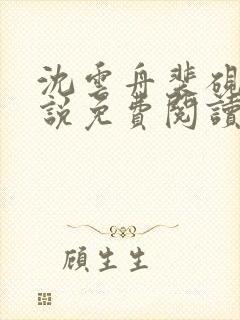 沈雲舟裴硯
說免費閱讀
顧生生